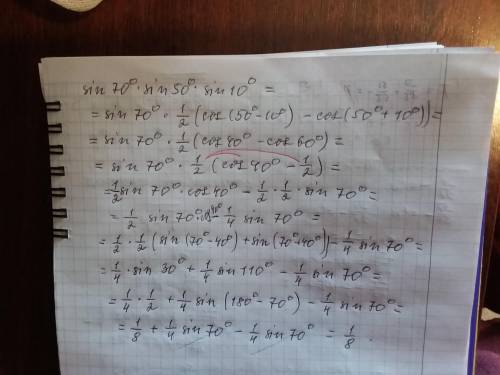 sin 70° · sin 50° · sin 10° =
= sin 70° · 1/2 (cos (50° - 10°) - cos (50° + 10°)) =
= sin 70° · 1/2 (cos 40° - cos 60°) =
= sin 70° · 1/2 (cos 40° - 1/2) =
= 1/2 sin 70° · cos 40° - 1/2 · 1/2 · sin 70° =
= 1/2 sin 70° · cos 40° - 1/4 sin 70° =
= 1/2 · 1/2 (sin (70° - 40°) + sin (70° + 40°)) - 1/4 sin 70° =
= 1/4 · sin 30° + 1/4 sin 110° - 1/4 sin 70° =
= 1/4 · 1/2 + 1/4 sin (180° - 70°) - 1/4 sin 70° =
= 1/8 + 1/4 sin 70° - 1/4 sin 70° = 1/8 .